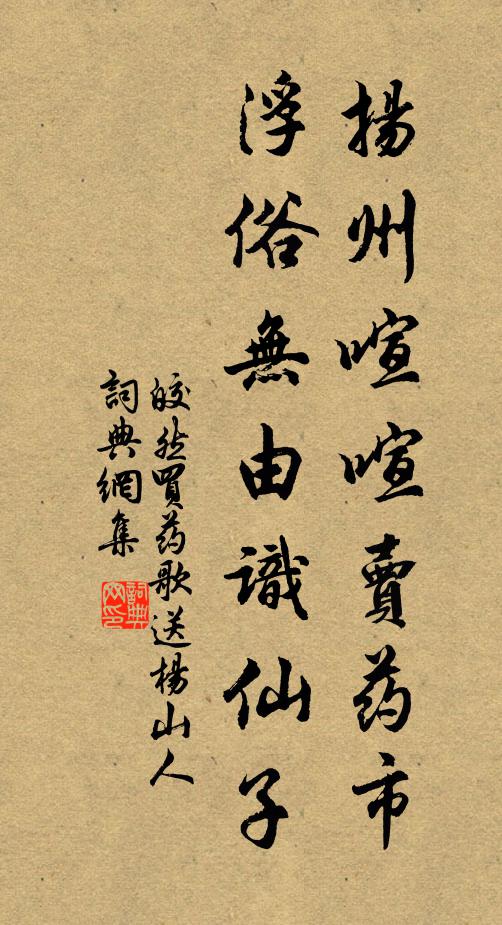 揚州喧喧賣药市
浮俗無由識仙子
皎然買药歌送楊山人
詞典網集
詞典
网印